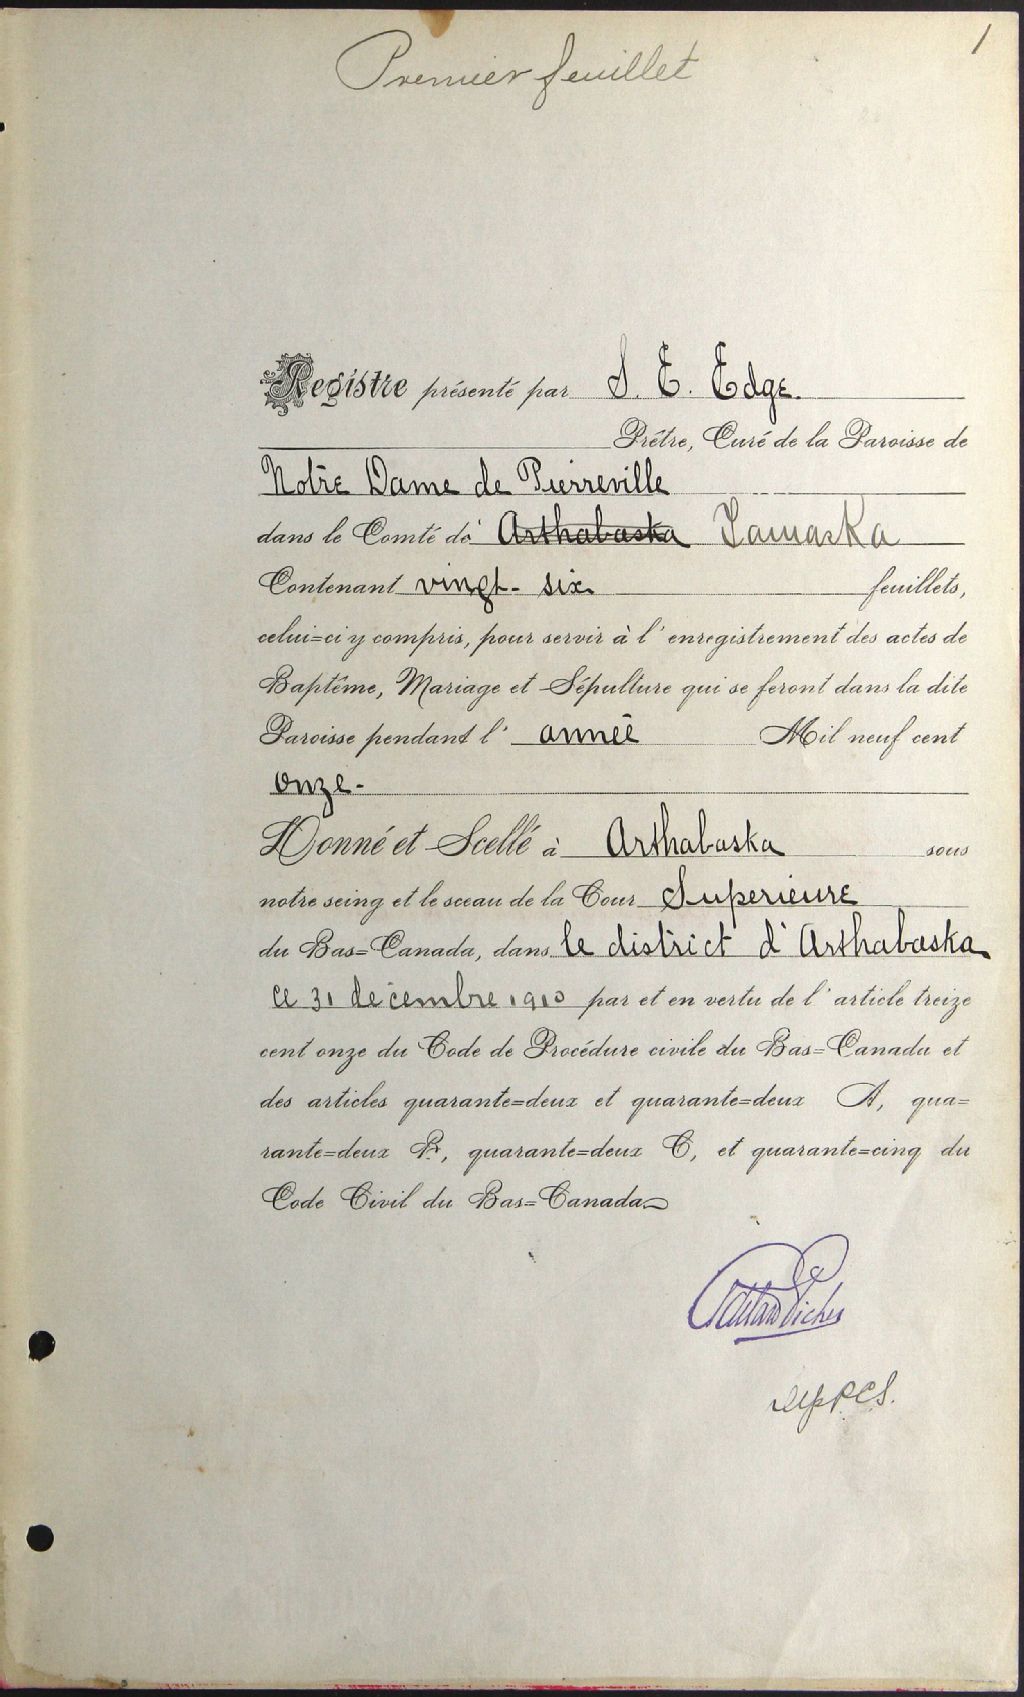 1
Premier feuillet
Registre présenté par S. E. Edge.
Prêtre, Curé de la Paroisse de
Notre Dame de Pierreville
dans le Comté de Arthabaska Yamaska
Contenant vingt-six feuillets,
celui=ci y compris, pour servir à l'enregistrement des actes de
Baptême, Mariage et Sépulture qui se feront dans la dite
Paroisse pendant l' année Mil neuf cent
onze-
Donné et Scellé à Arthabaska sous
notre seing et le sceau de la Cour Superieure
du Bas=Canada, dans le district d'Arthabaska
ce 31 décembre 1910 par et en vertu de l'article treize
cent onze du Code de Procédure civile du Bas=Canada et
des articles quarante=deux et quarante=deux A, qua=
rante=deux B, quarante=deux C, et quarante=cinq du
Code Civil du Bas=Canada
Dep P.C.S.